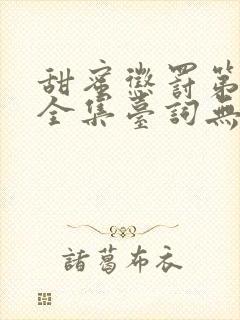 甜蜜懲罰第
全集臺詞無
諸葛布衣